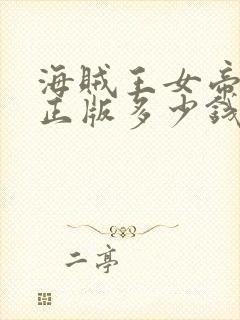 海贼王女帝
正版多少钱
二亭